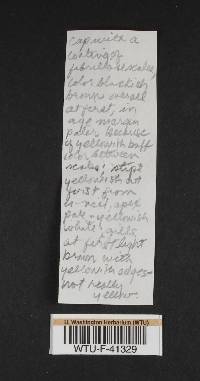 Cap with a
coating of
fibrillose scales,
color blackish
brown overall
at first, in
age margin
paler because
a yellowish buff
color between
scales; stipe
yellowish but
first from
apex
pale yellowish
white; gills
at first light
brown with
yellowish edges
not really
yellow.
U. Washington Herbarium (WTU)
WTU-F-41329